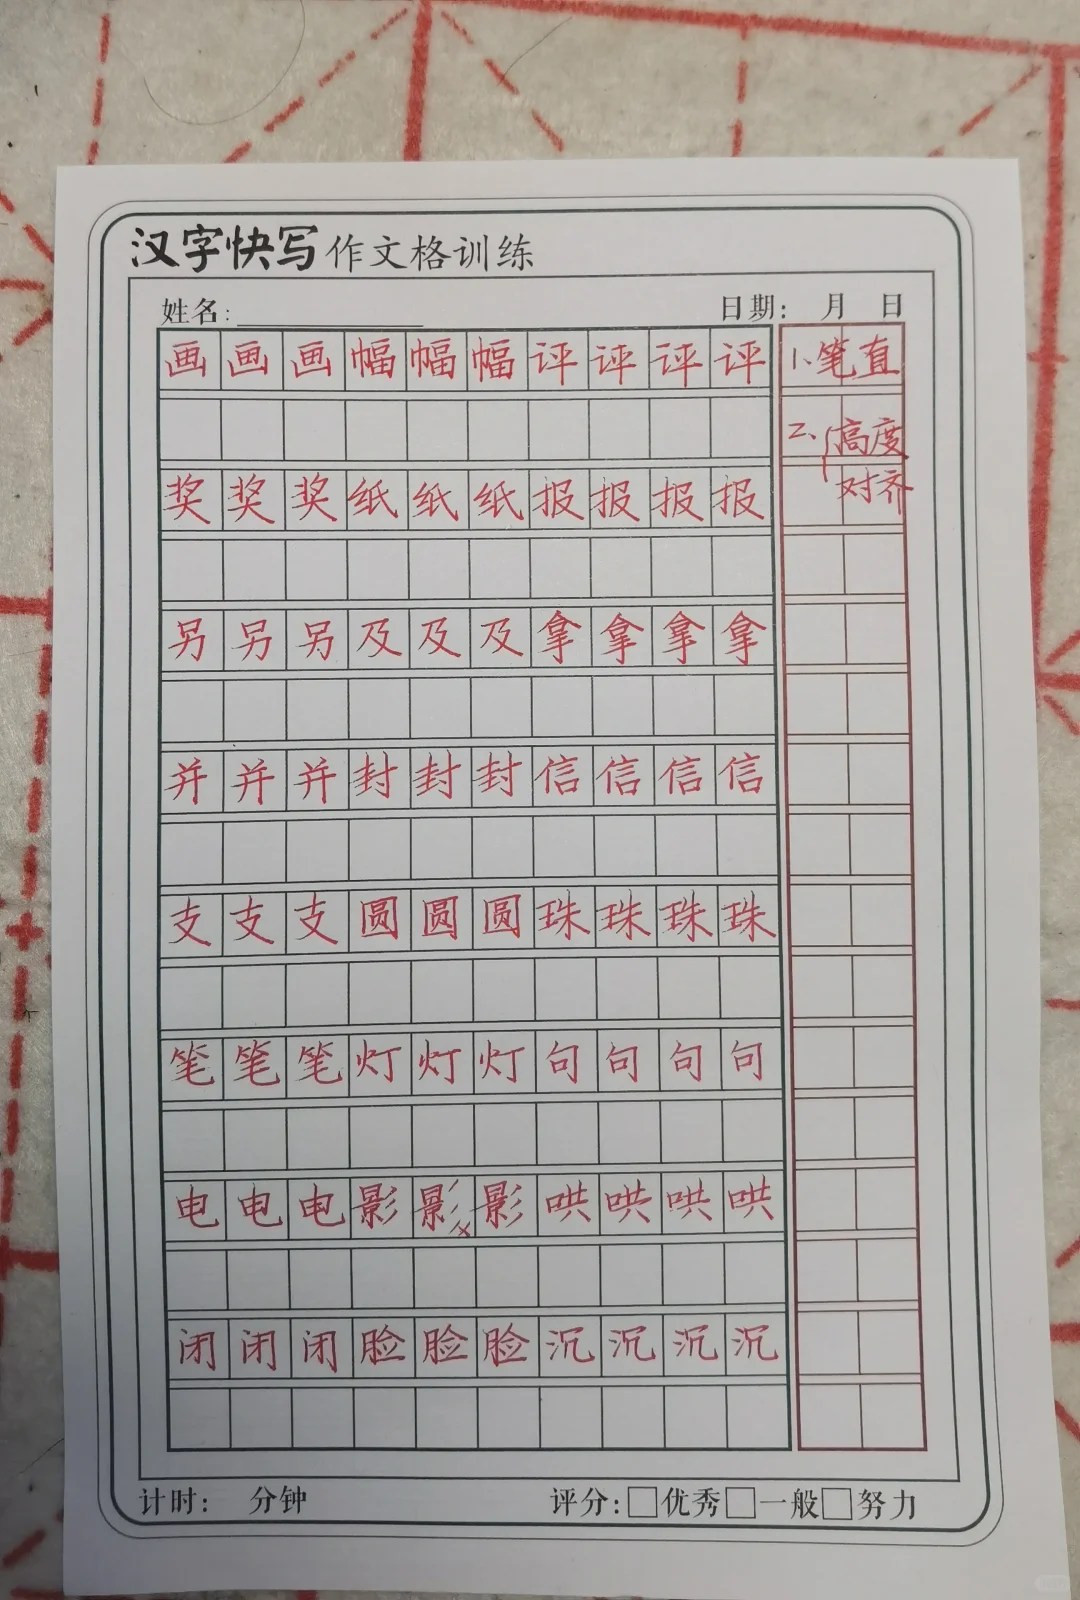 汉字快写作文格训练
姓名: 日期: 月 日
画画画幅幅幅评评评评 1、笔直
2、高度
奖奖奖纸纸纸报报报报 对齐
另另另及及及拿拿拿拿
并并并封封封信信信信
支支支圆圆圆珠珠珠珠
笔笔笔灯灯灯句句句句
电电电影影影哄哄哄哄
闭闭闭脸脸脸沉沉沉沉
计时: 分钟 评分:□优秀□一般□努力